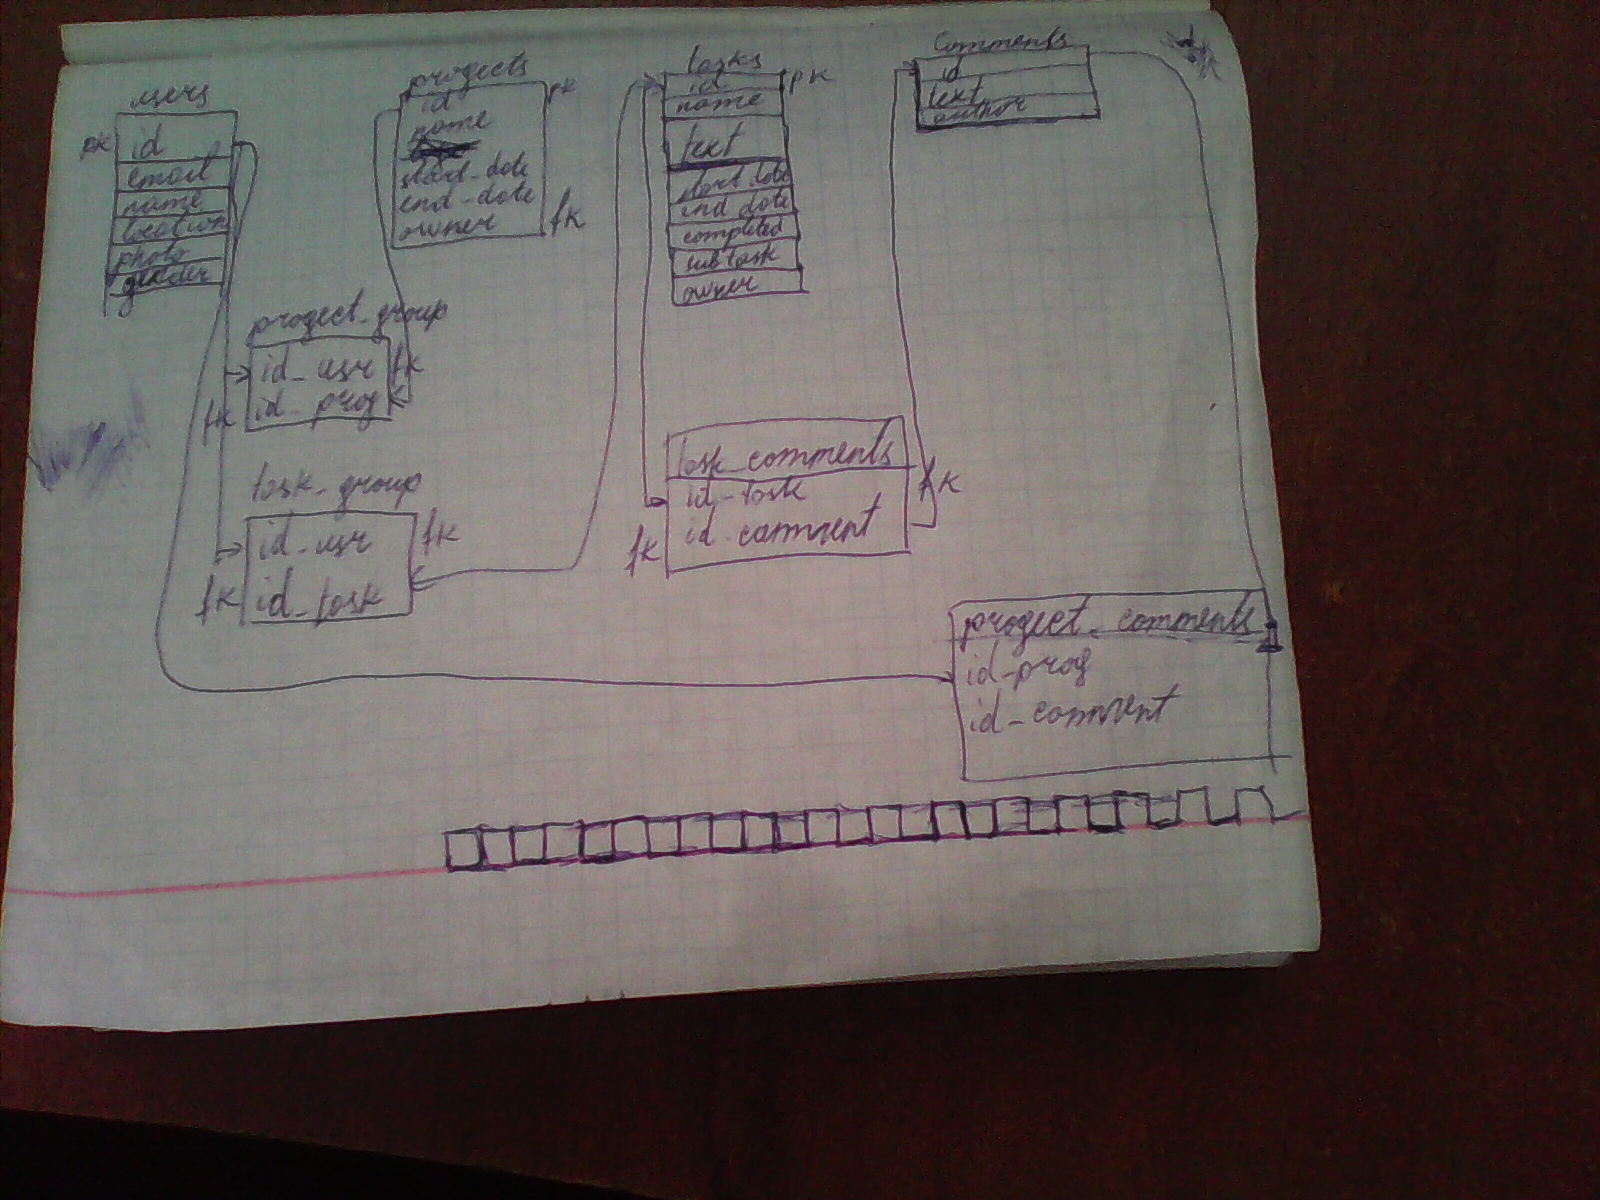 users
pk
id
email
name
location
photo
gender
progects
id
pk
name
start-date
end-date
owner
fk
tasks
id
pk
name
text
start date
end date
completed
subtask
owner
Comments
id
text
author
progect-group
id-usr
fk
fk
id-prog
task-group
id-usr
fk
fk
id-task
task-comments
id-task
fk
fk
id comment
progect-comments
id-prog
id-comment